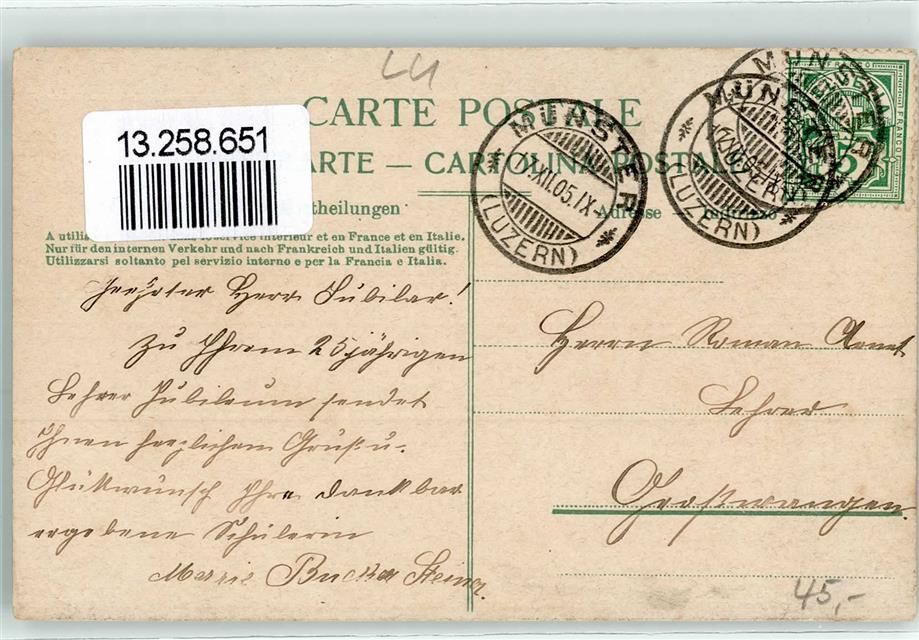 LU
CARTE POSTALE
13.258.651
ARTE — CARTOLINA POSTALE
theilungen
Adresse — Indirizzo
MÜNSTER
1.XII.05.IX
(LUZERN)
MÜNSTER
(LUZERN)
MÜNSTER
FRANCO
5
A utili service intérieur et en France et en Italie.
Nur für den internen Verkehr und nach Frankreich und Italien gültig.
Utilizzarsi soltanto pel servizio interno e per la Francia e Italia.
Herr Jubilar!
Zu Ihrem 25 jährigen
Lehrer Jubileum sendet
Ihnen herzlichen Gruß u.
Glückwunsch Ihre dankbar
ergebene Schülerin
Marie Bucher
Herrn Roman Arnet
Lehrer
Großwangen
45,-